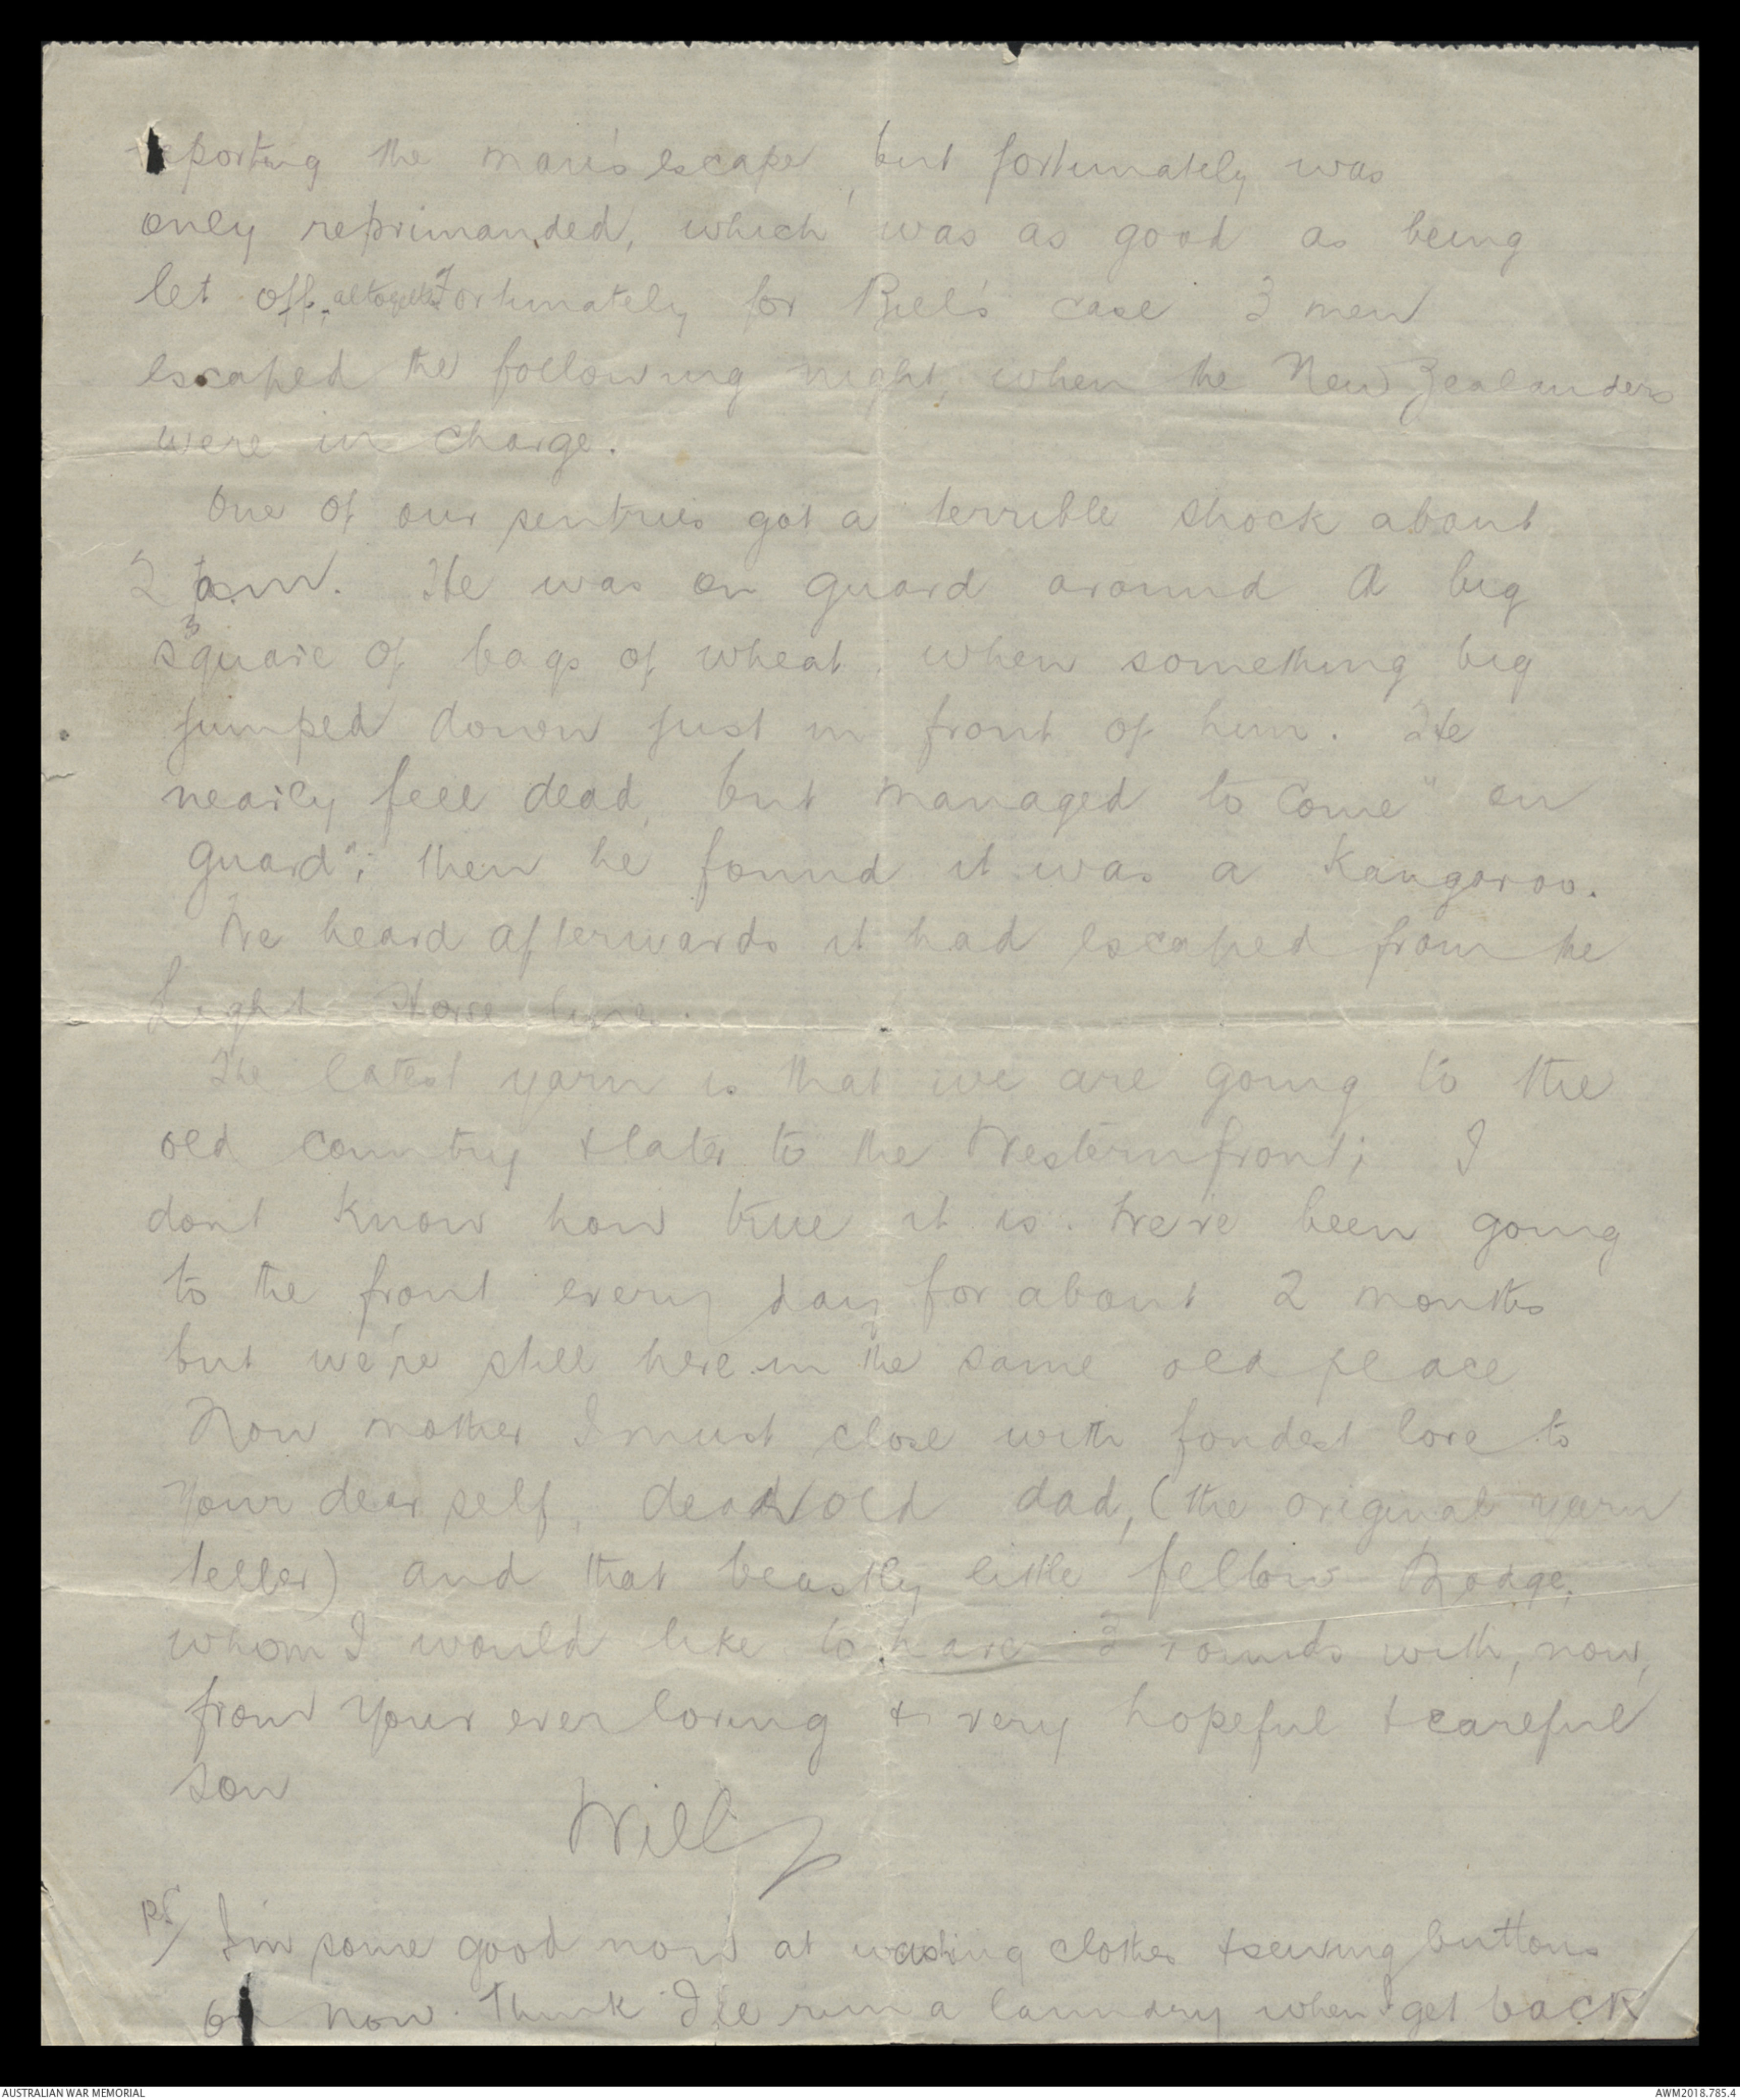 reporting the man's escape, but fortunately was
only reprimanded, which was as good as being
let off, altogether fortunately for Bill's case 3 men
escaped the following night, when the New Zealanders
were in charge.
One of our sentries got a terrible shock about
2 a.m. He was on guard around a big
square of bags of wheat, when something big
jumped down just in front of him. He
nearily fell dead, but managed to come "on
guard"; then he found it was a Kangaroo.
We heard afterwards it had escaped from the
Light Horse lines.
The latest yarn is that we are going to the
old country & later to the Western front; I
dont know how true it is. We've been going
to the front every day for about 2 months
but we're still here in the same old place
Now mother I must close with fondest love to
your dear self, dear old dad, (the original yarn
teller) and that beastly little fellow
whom I would like to have 3 rounds with, now,
from your ever loving & very hopeful & careful
son
Will
PS/ I'm some good now at washing clothes & sewing buttons
on now. Think I'll run a laundry when I get back
AUSTRALIAN WAR MEMORIAL
AWM2018.785.4